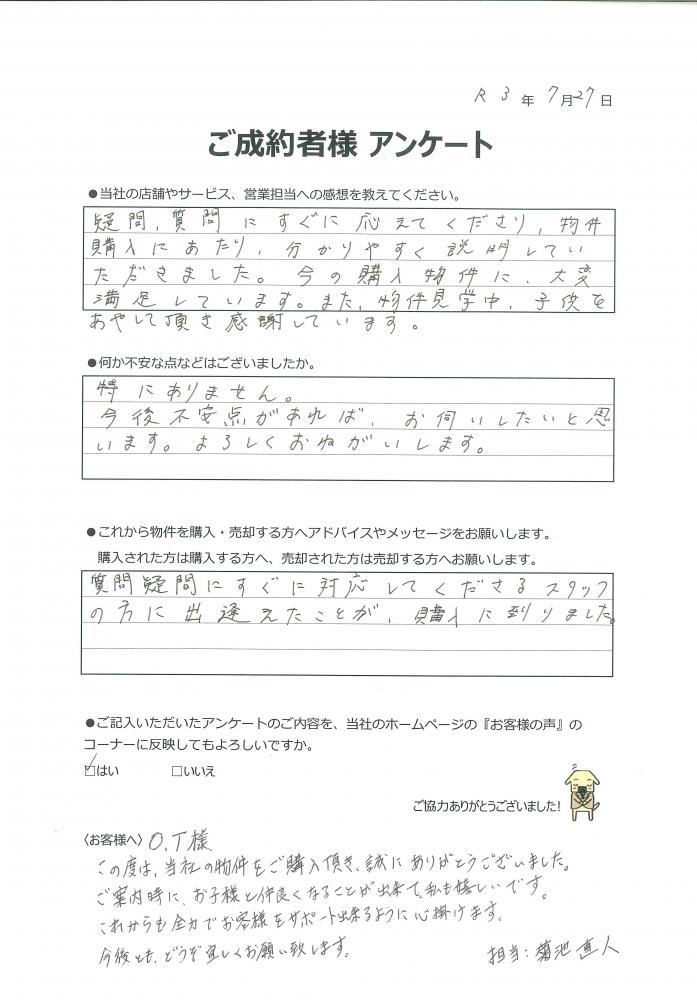 R 3 年 7月27日
ご成約者様 アンケート
●当社の店舗やサービス、営業担当への感想を教えてください。
疑問,質問にすぐに応えてくださり,物件
購入にあたり,分かりやすく説明してい
ただきました。今の購入物件に,大変
満足しています。また,物件見学中,子供を
あやして頂き感謝しています。
●何か不安な点などはございましたか。
特にありません。
今後不安点があれば,お伺いしたいと思
います。よろしくおねがいします。
●これから物件を購入・売却する方へアドバイスやメッセージをお願いします。
購入された方は購入する方へ、売却された方は売却する方へお願いします。
質問疑問にすぐに対応してくださるスタッフ
の方に出逢えたことが,購入に到りました。
●ご記入いただいたアンケートのご内容を、当社のホームページの『お客様の声』の
コーナーに反映してもよろしいですか。
☑はい □いいえ
ご協力ありがとうございました!
〈お客様へ〉O.T様
この度は,当社の物件をご購入頂き,誠にありがとうございました。
ご案内時に,お子様と仲良くなることが出来て,私も嬉しいです。
これからも全力でお客様をサポート出来るように心掛けます。
今後とも,どうぞ宜しくお願い致します。
担当:菊池直人